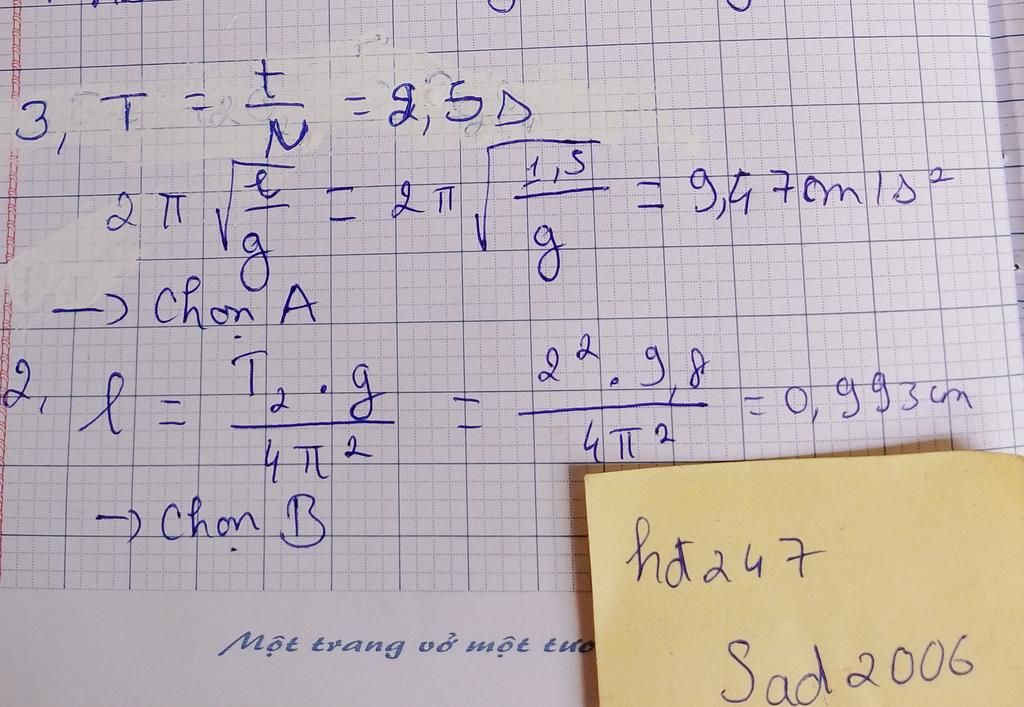 3, T = t/N = 2,5 s
2π √(l/g) = 2π √(1,5/g) = 9,47 cm/s²
→ Chọn A
2, l = T₂ . g / 4π² = 2² . 9,8 / 4π² = 0,993 cm
→ Chọn B
hđ247
Sad2006
Một trang vở một tươ